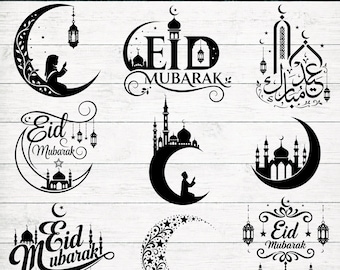 EID
MUBARAK
عيد
مبارك
Eid
Mubarak
Eid
Mubarak
Eid
Mubarak